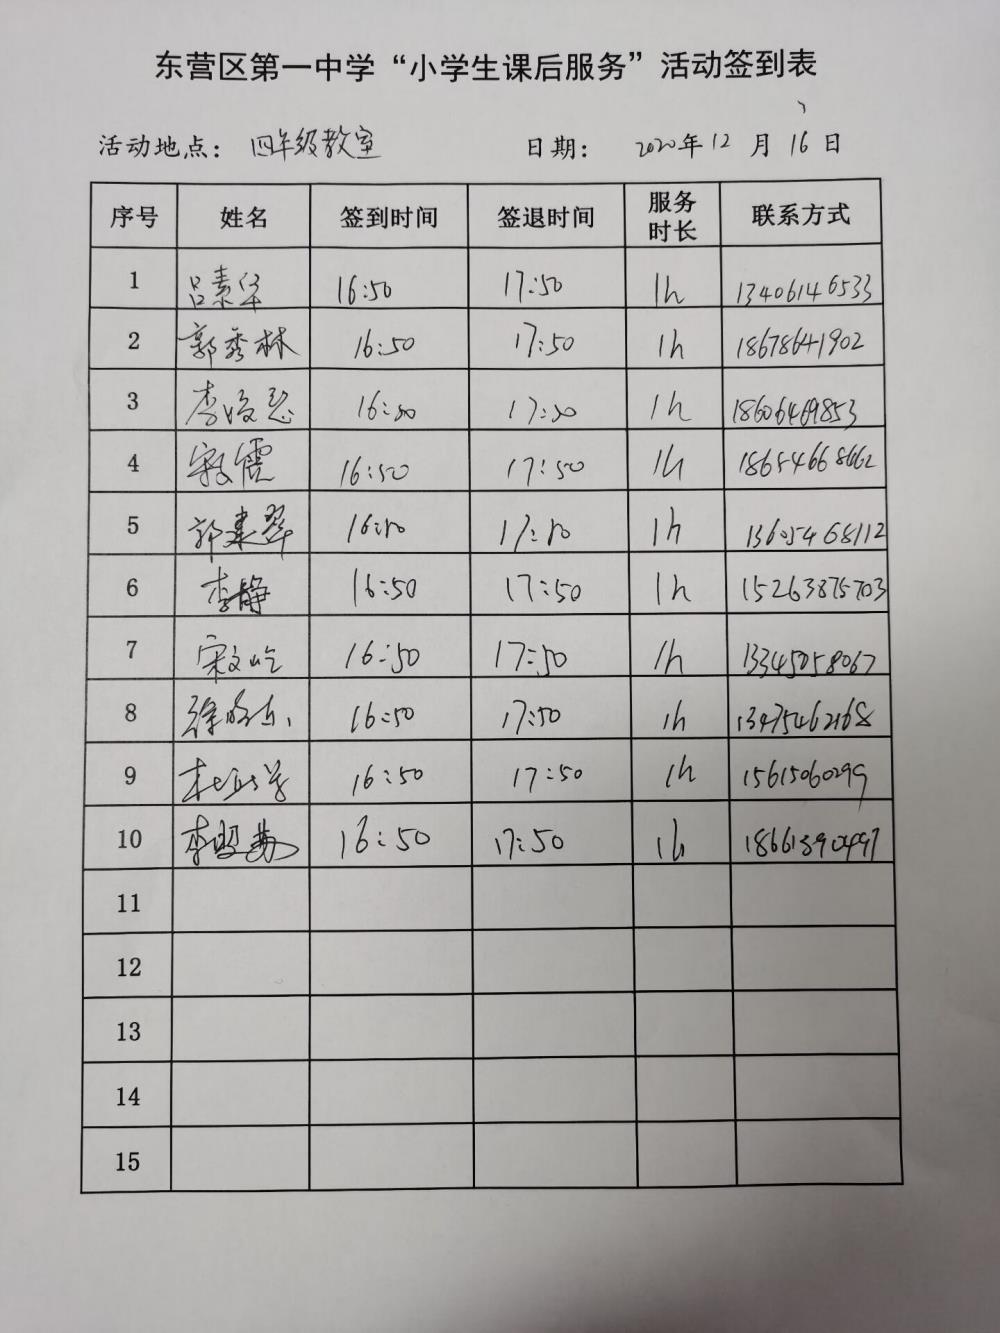 东营区第一中学“小学生课后服务”活动签到表
活动地点： 四年级教室 日期： 2020年12月16日
序号 姓名 签到时间 签退时间 服务时长 联系方式
1 吕素华 16:50 17:50 1h 13406146533
2 郭秀林 16:50 17:50 1h 18678641902
3 16:50 17:50 1h 18606469853
4 16:50 17:50 1h 18654668662
5 郭建翠 16:50 17:50 1h 13605468112
6 李静 16:50 17:50 1h 15263875703
7 宋文屹 16:50 17:50 1h 13345058067
8 16:50 17:50 1h 13475462168
9 16:50 17:50 1h 15615060299
10 16:50 17:50 1h
11
12
13
14
15